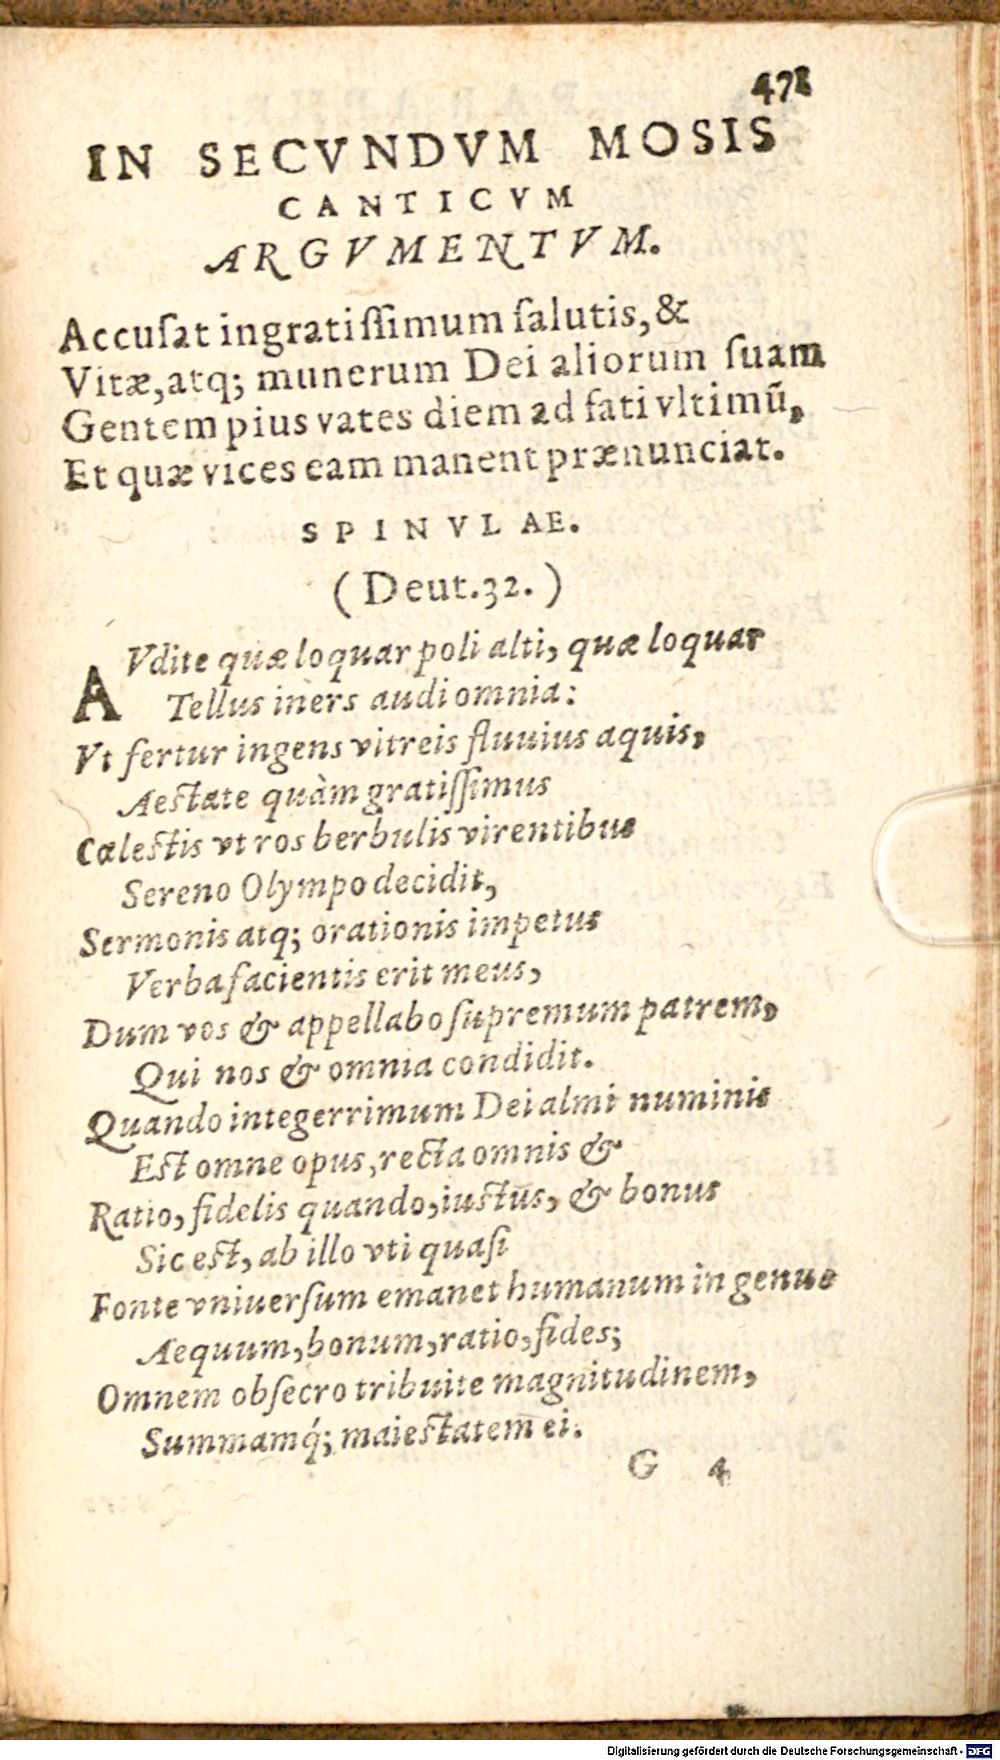 471
IN SECVNDVM MOSIS
CANTICVM
ARGVMENTVM.
Accuſat ingratiſſimum ſalutis, &
Vitæ, atq; munerum Dei aliorum ſuam
Gentem pius vates diem ad fati vltimũ,
Et quæ vices eam manent prænunciat.
SPINVLAE.
(Deut.32.)
AVdite quæ loquar poli alti, quæ loquar
Tellus iners audi omnia:
Vt fertur ingens vitreis fluuius aquis,
Aeſtate quàm gratiſſimus
Cæleſtis vt ros herbulis virentibus
Sereno Olympo decidit,
Sermonis atq; orationis impetus
Verba facientis erit meus,
Dum vos & appellabo ſupremum patrem,
Qui nos & omnia condidit.
Quando integerrimum Dei almi numinis
Eſt omne opus, recta omnis &
Ratio, fidelis quando, iuſtus, & bonus
Sic eſt, ab illo vti quaſi
Fonte vniuerſum emanet humanum in genus
Aequum, bonum, ratio, fides;
Omnem obſecro tribuite magnitudinem,
Summamq́; maieſtatem ei.
G 4
Digitalisierung gefördert durch die Deutsche Forschungsgemeinschaft - DFG